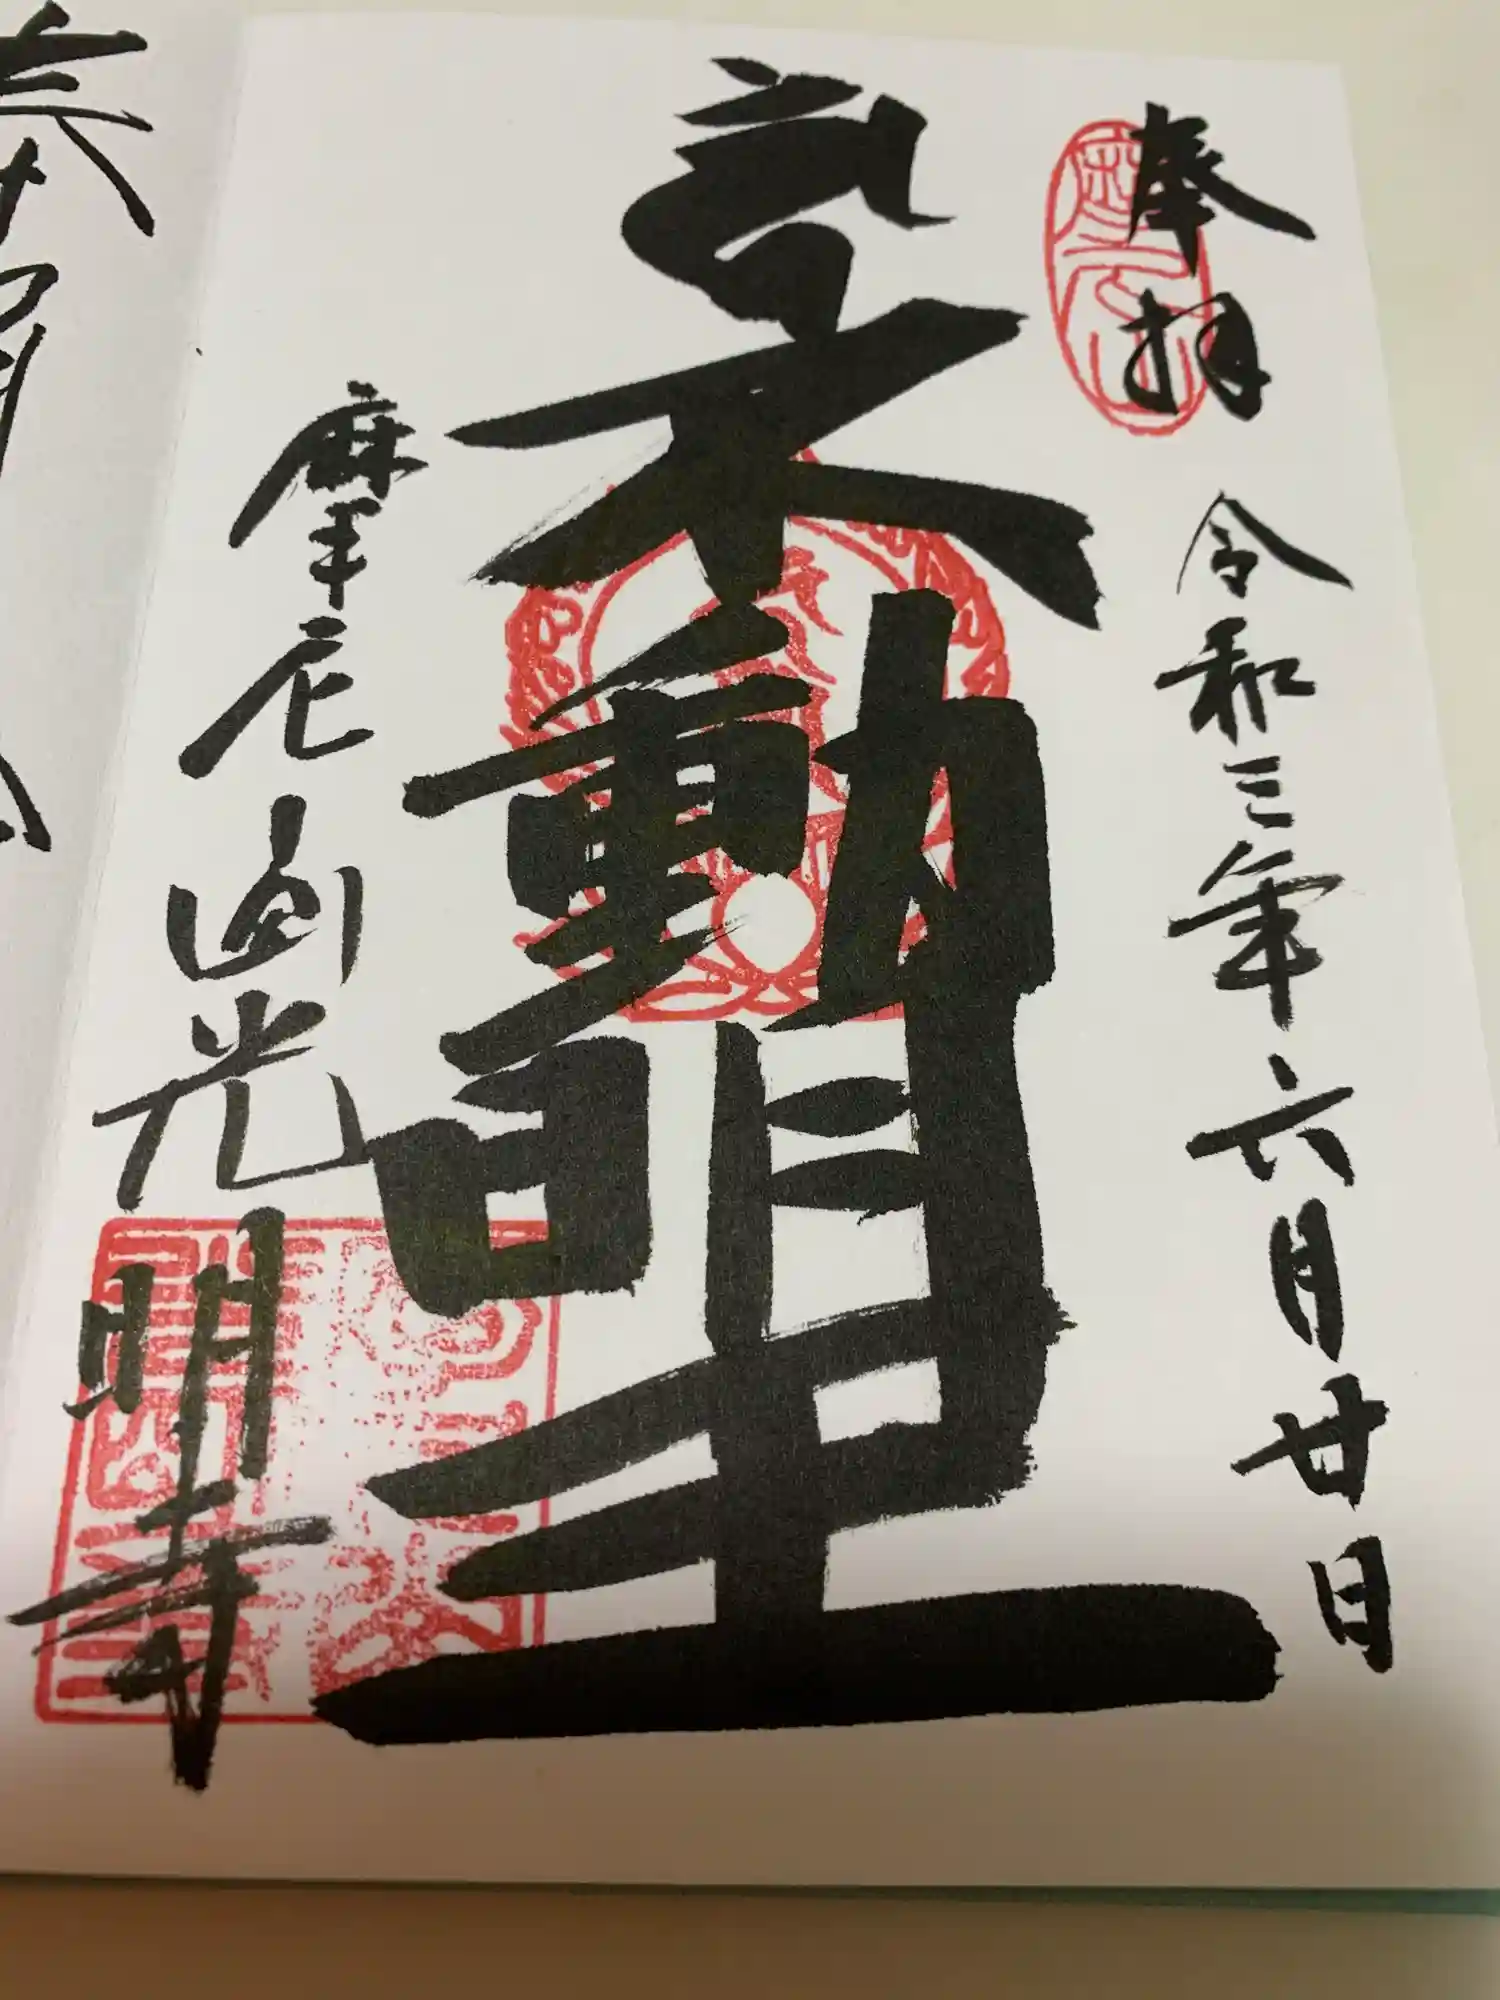 奉拝 令和三年六月廿日
不動明王
摩尼山光明寺